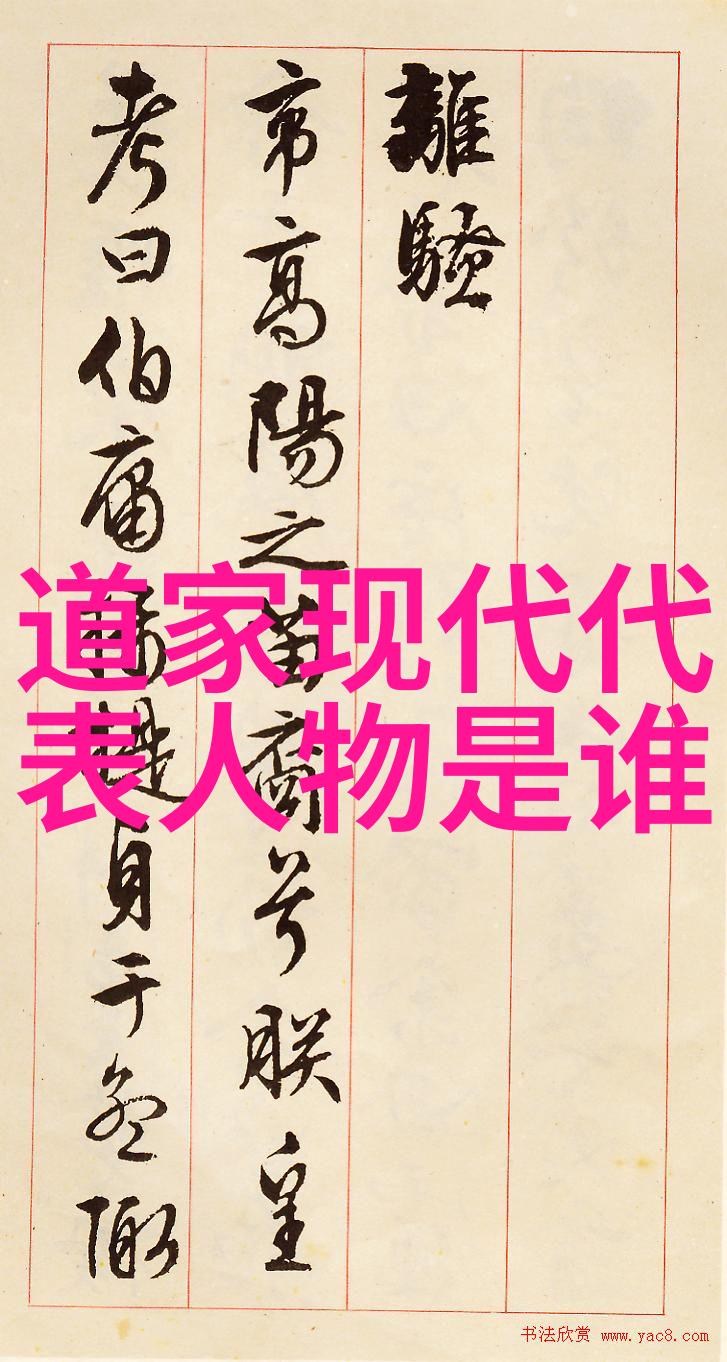 離騷
帝高陽之苗裔兮朕皇
考曰伯庸攝提貞于孟陬
道家现代代
表人物是谁
书法欣赏 www.yac8.com